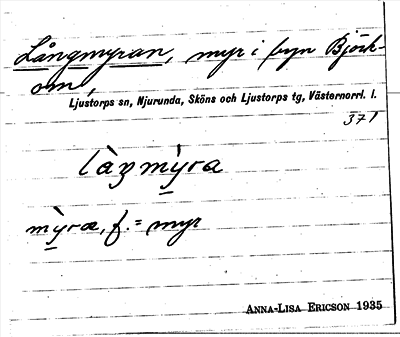 Långmyran, myr i byn Björk-
om,
Ljustorps sn, Njurunda, Sköns och Ljustorps tg, Västernorrl. l.
371
làŋmỳra
mỳra, f. = myr
ANNA-LISA ERICSON 1935